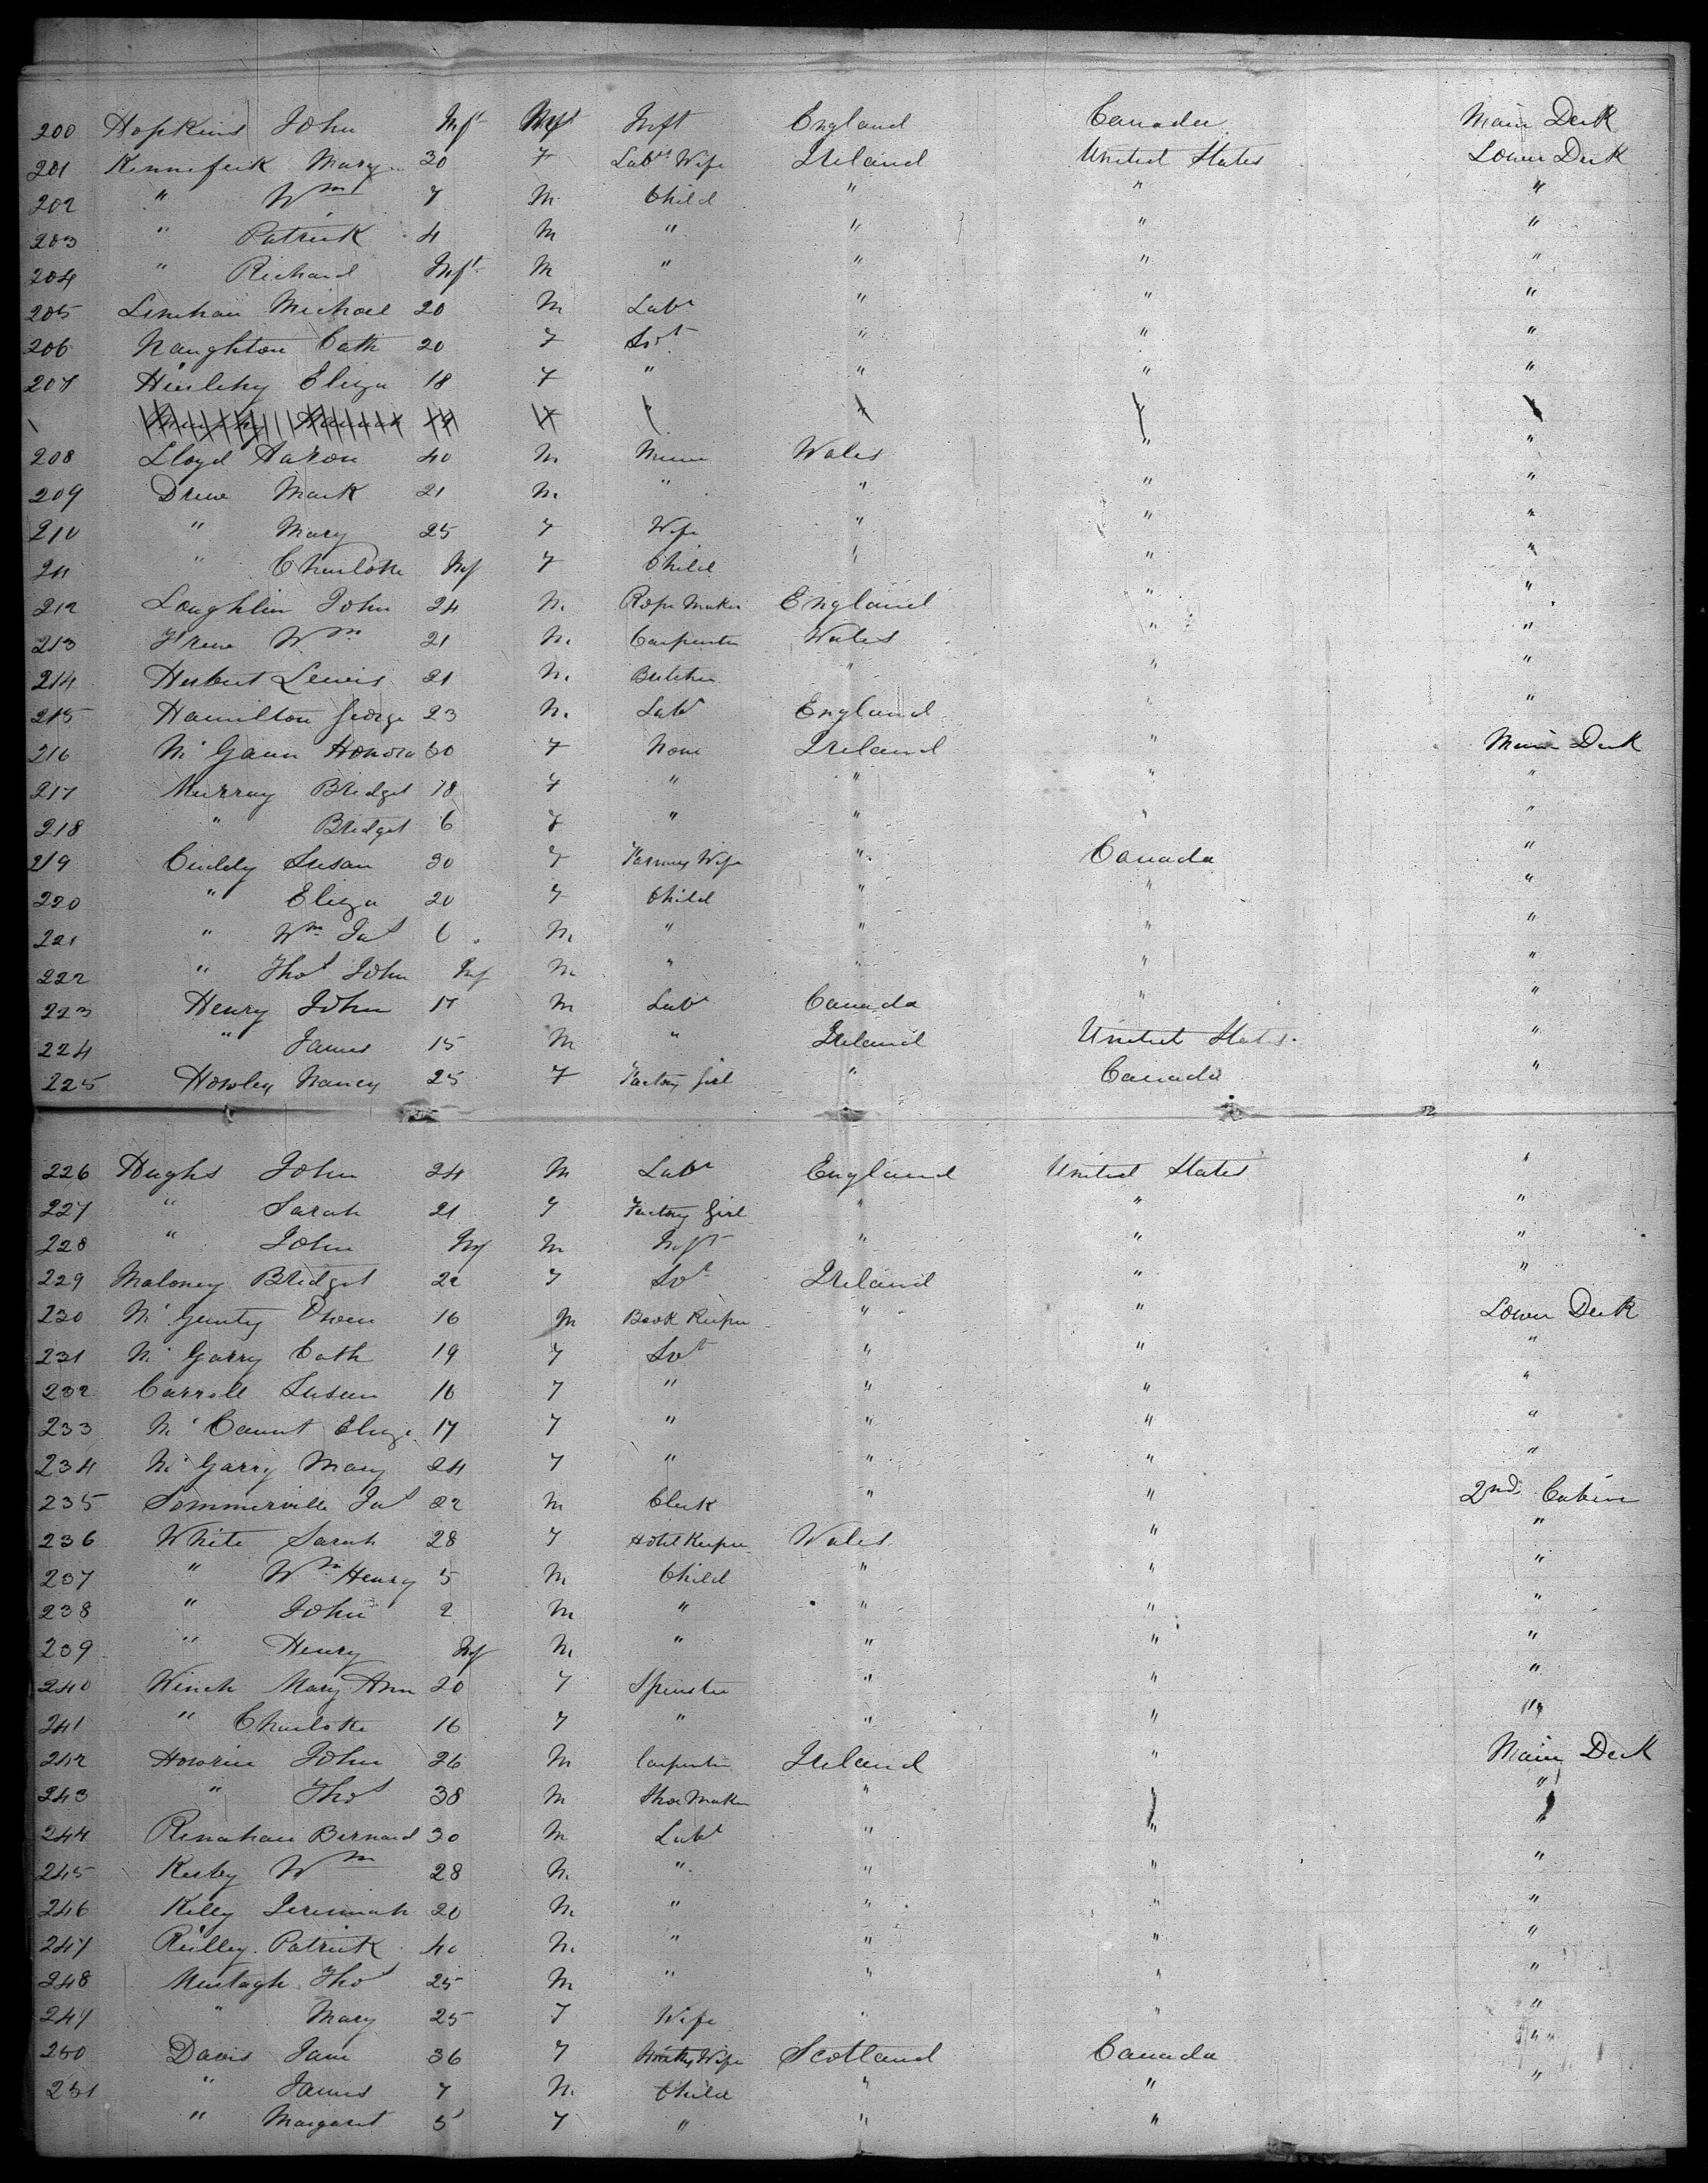 200 Hopkins John Inft Inft Inft England Canada Main Deck
201 Kennefick Mary 30 F Labrs Wife Ireland United States Lower Deck
202 " Wm 7 M Child " " "
203 " Patrick 4 M " " " "
204 " Richard Inft M " " " "
205 Linehan Michael 20 M Labr " " "
206 Naughton Cath 20 F Svt " " "
207 Eliza 18 F " " " "
208 Lloyd Aaron 40 M Miner Wales " "
209 Drew Mark 21 M " " " "
210 " Mary 25 F Wife " " "
211 " Charlotte Inf F Child " " "
212 Loughlin John 24 M Rope Maker England " "
213 Wm 21 M Carpenter Wales " "
214 Herbert Lewis 21 M Butcher " " "
215 Hamilton George 23 M Labr England " "
216 McGann Honora 30 F None Ireland " Main Deck
217 Murray Bridget 18 F " " " "
218 " Bridget 6 F " " " "
219 Cuddy Susan 30 F Farmers Wife " Canada "
220 " Eliza 20 F Child " " "
221 " Wm Jas 6 M " " " "
222 " Thos John Inf M " " " "
223 Henry John 17 M Labr Canada " "
224 " James 15 M " Ireland United States "
225 Howley Nancy 25 F Factory Girl " Canada "
226 Hughs John 24 M Labr England United States "
227 " Sarah 21 F Factory Girl " " "
228 " John Inf M Inft " " "
229 Maloney Bridget 22 F Svt Ireland " "
230 Mc Ginty Owen 16 M Book Keeper " " Lower Deck
231 Mc Garry Cath 19 F Svt " " "
232 Carroll Susan 16 F " " " "
233 Mc Eliza 17 F " " " "
234 Mc Garry Mary 24 F " " " "
235 Sommerville Jas 22 M Clerk " " 2nd Cabin
236 White Sarah 28 F Hotel Keeper Wales " "
237 " Wm Henry 5 M Child " " "
238 " John 2 M " " " "
239 " Henry Inf M " " " "
240 Winch Mary Ann 20 F Spinster " " "
241 " Charlotte 16 F " " " "
242 John 26 M Carpenter Ireland " Main Deck
243 " Thos 38 M Shoe Maker " " "
244 Renahan Bernard 30 M Labr " " "
245 Wm 28 M " " " "
246 Kelly Jeremiah 20 M " " " "
247 Reilley Patrick 40 M " " " "
248 Murtagh Thos 25 M " " " "
249 " Mary 25 F Wife " " "
250 Davis Jane 36 F Wife Scotland Canada "
251 " James 7 M Child " " "
" Margaret 5 F " " "